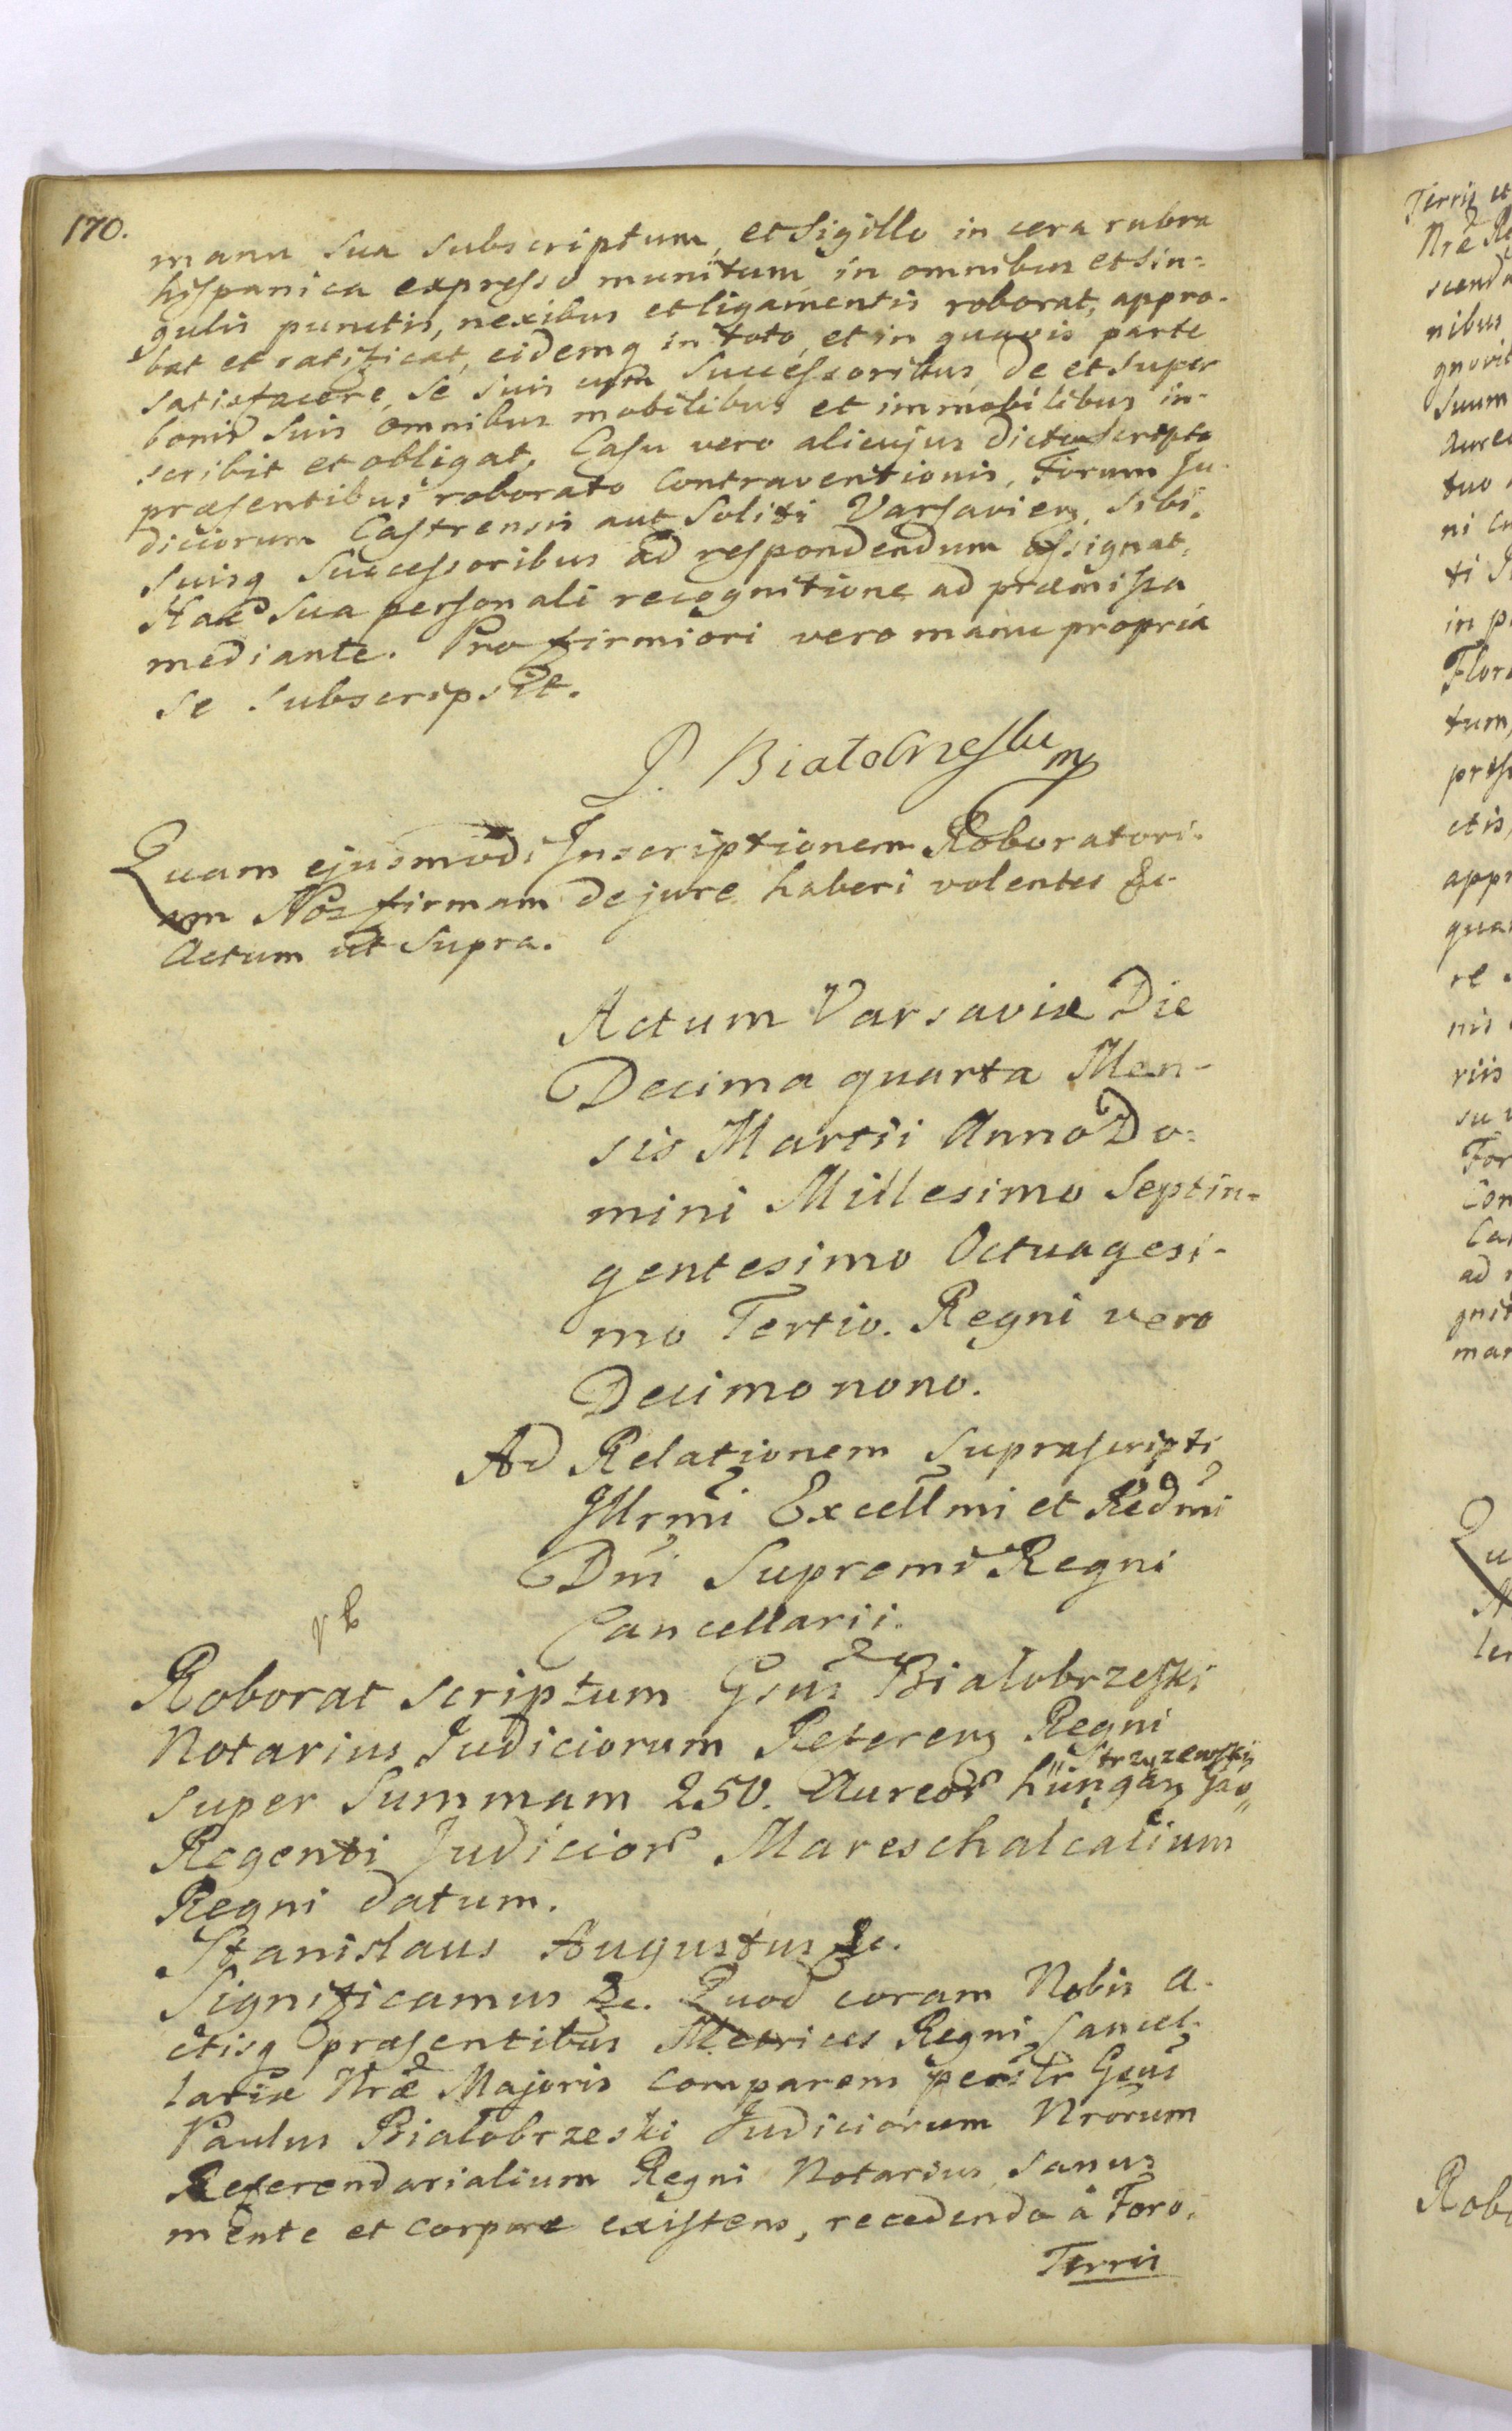 170.
manu sua subscriptum, et Sigillo in cera rubra
hispanica expresso munitum in omnibus et sin-
gulis punctis, nexibus et ligamentis roborat, appro-
bat et ratificat, eidemq in toto, et in quavis parte
satisfacere, se suis cum Successoribus, de et super
bonis suis omnibus mobilibus et immobilibus in-
scribit et obligat. Casu vero alicujus dicto Scripto
præsentibus roborato Contraventionis, Forum Ju-
diciorum Castrensis aut Soliti Varsavien, sibi,
suisq Successoribus ad respondendum assignat,
Hac sua personali recognitione ad præmissa
mediante. Pro firmiori vero manu propria
se subscripsit.
P. Białobrzeski mp
Quam ejusmodi Inscriptionem Roboratori-
am Nos firmam de jure haberi volentes &c
Actum ut supra.
Actum Varsaviæ Die
Decima quarta Men-
sis Martii Anno Do-
mini Millesimo Septin-
gentesimo Octuagesi-
mo Tertio. Regni vero
Decimo nono.
Ad Relationem suprascripti
Illrmi Excellmi et Redmi
Dni Supremi Regni
Cancellarii.
Roborat scriptum Gsus Białobrzeski
Notarius Judiciorum Referen Regni
Strzyzewski
super Summam 250. Aureor hungar Gso
Regenti Judicior Mareschalcalium
Regni datum.
Stanislaus Augustus &c.
Significamus &c. Quod coram Nobis a-
ctisq præsentibus Metrices Regni Cancel-
lariæ Nræ Majoris comparens perslr Gsus
Paulus Białobrzeski Judiciorum Nrorum
Referendarialium Regni Notarius sanus
mente et corpore existens, recedendo à Foro,
Terris